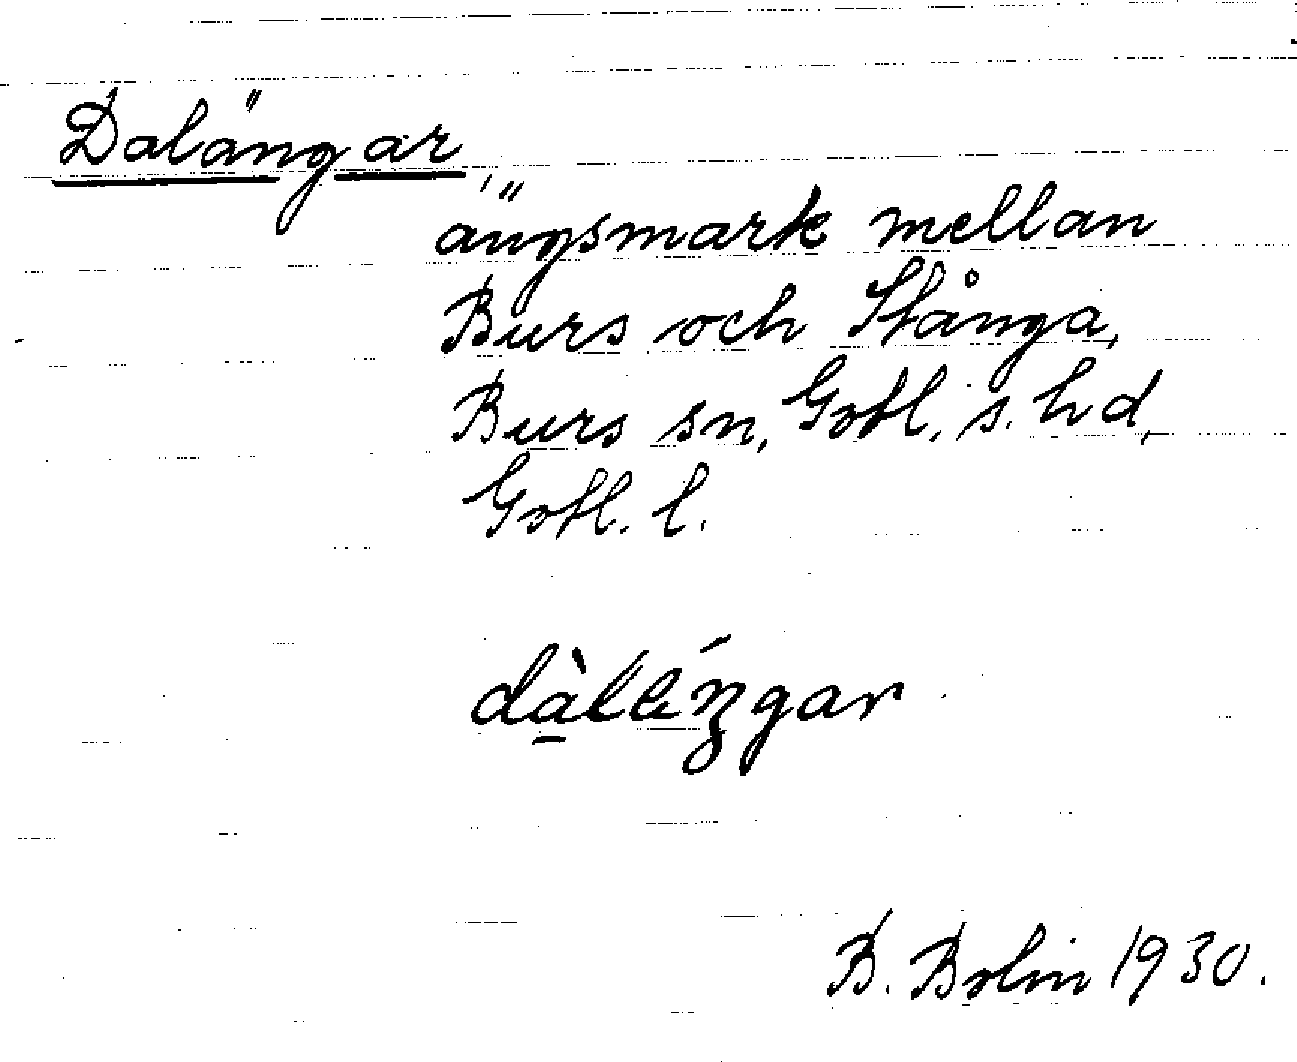 Dalängar,
ängsmark mellan
Burs och Stånga,
Burs sn, Gotl. s. hd,
Gotl. l.
B. Bolin 1930.